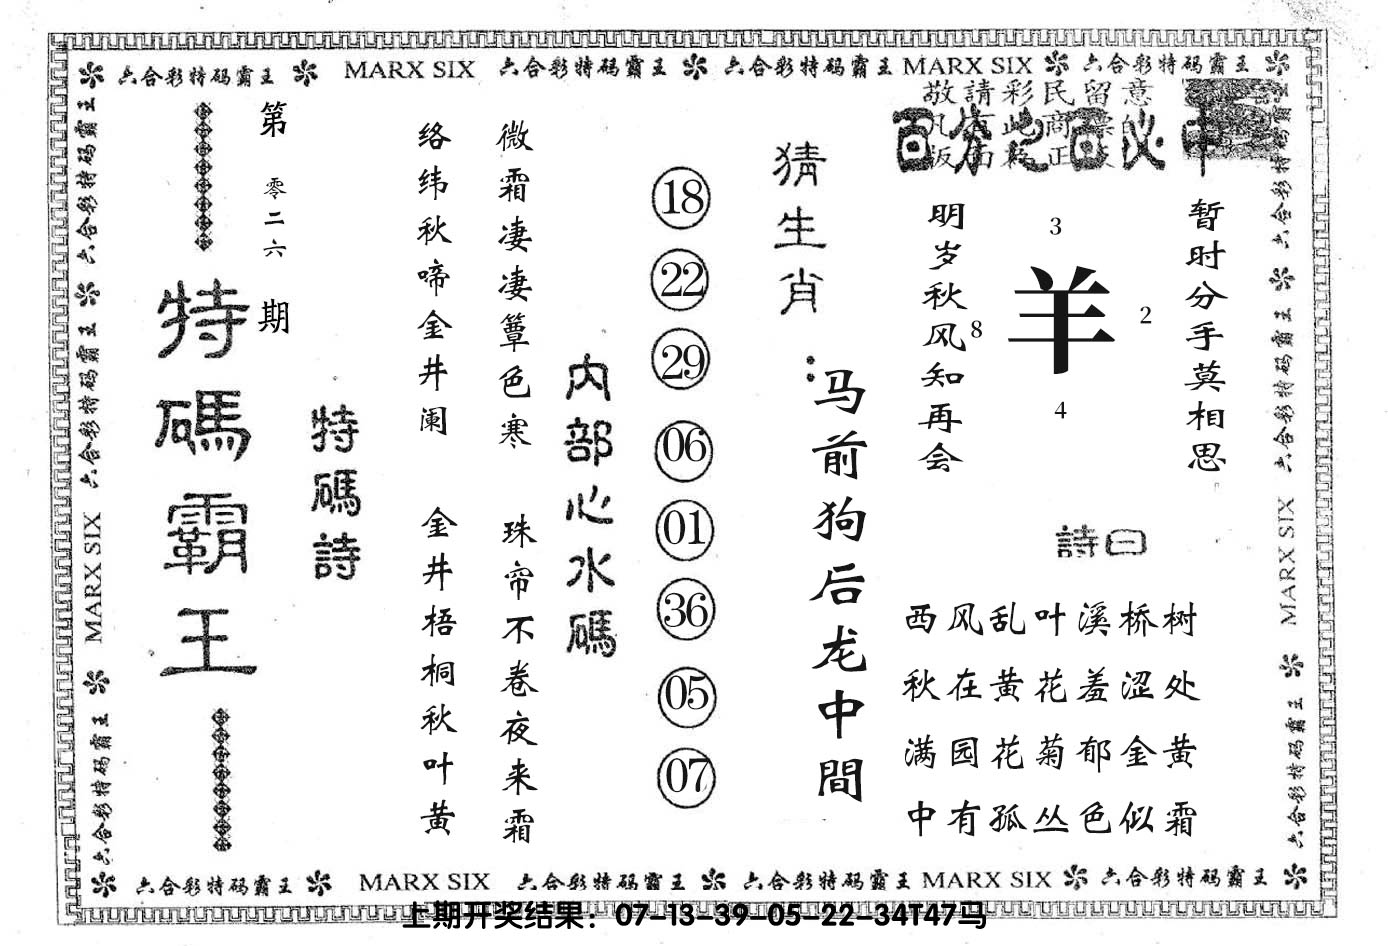 六合彩特码霸王 MARX SIX 六合彩特码霸王 六合彩特码霸王 MARX SIX 六合彩特码霸王
敬請彩民留意
百分之百必中
第零二六期
特碼霸王
特碼詩
络纬秋啼金井阑
微霜凄凄簟色寒
金井梧桐秋叶黄
珠帘不卷夜来霜
内部心水碼
18
22
29
06
01
36
05
07
猜生肖:
马前狗后龙中間
明岁秋风知再会
3
8
羊
2
4
暂时分手莫相思
詩曰
西风乱叶溪桥树
秋在黄花羞涩处
满园花菊郁金黄
中有孤丛色似霜
六合彩特码霸王 MARX SIX 六合彩特码霸王
六合彩特码霸王 MARX SIX 六合彩特码霸王
六合彩特码霸王 MARX SIX 六合彩特码霸王 六合彩特码霸王 MARX SIX 六合彩特码霸王
上期开奖结果：07-13-39-05-22-34T47马